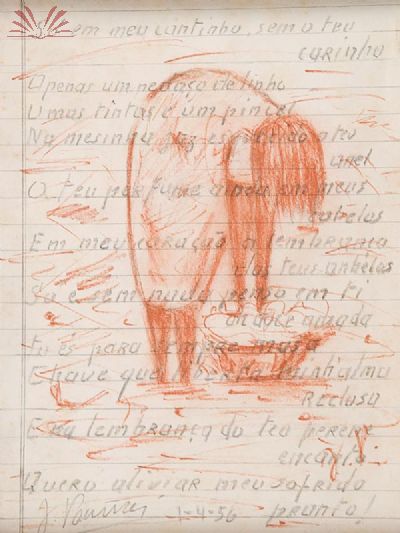 em meu cantinho, sem o teu
carinho
Apenas um pedaço de linho
Umas tintas e um pincel
Na mesinha esquecido o teu
anel
O teu perfume ainda em meus
cabelos
Em meu coração a lembrança
dos teus anhelos
Só e sem nada penso em ti
oh doce amada
Tu és para sempre musa
Chave que liberta minh'alma
Reclusa
E na lembrança do teu perene
encanto
Quero aliviar meu sofrido
pranto!
1-4-56